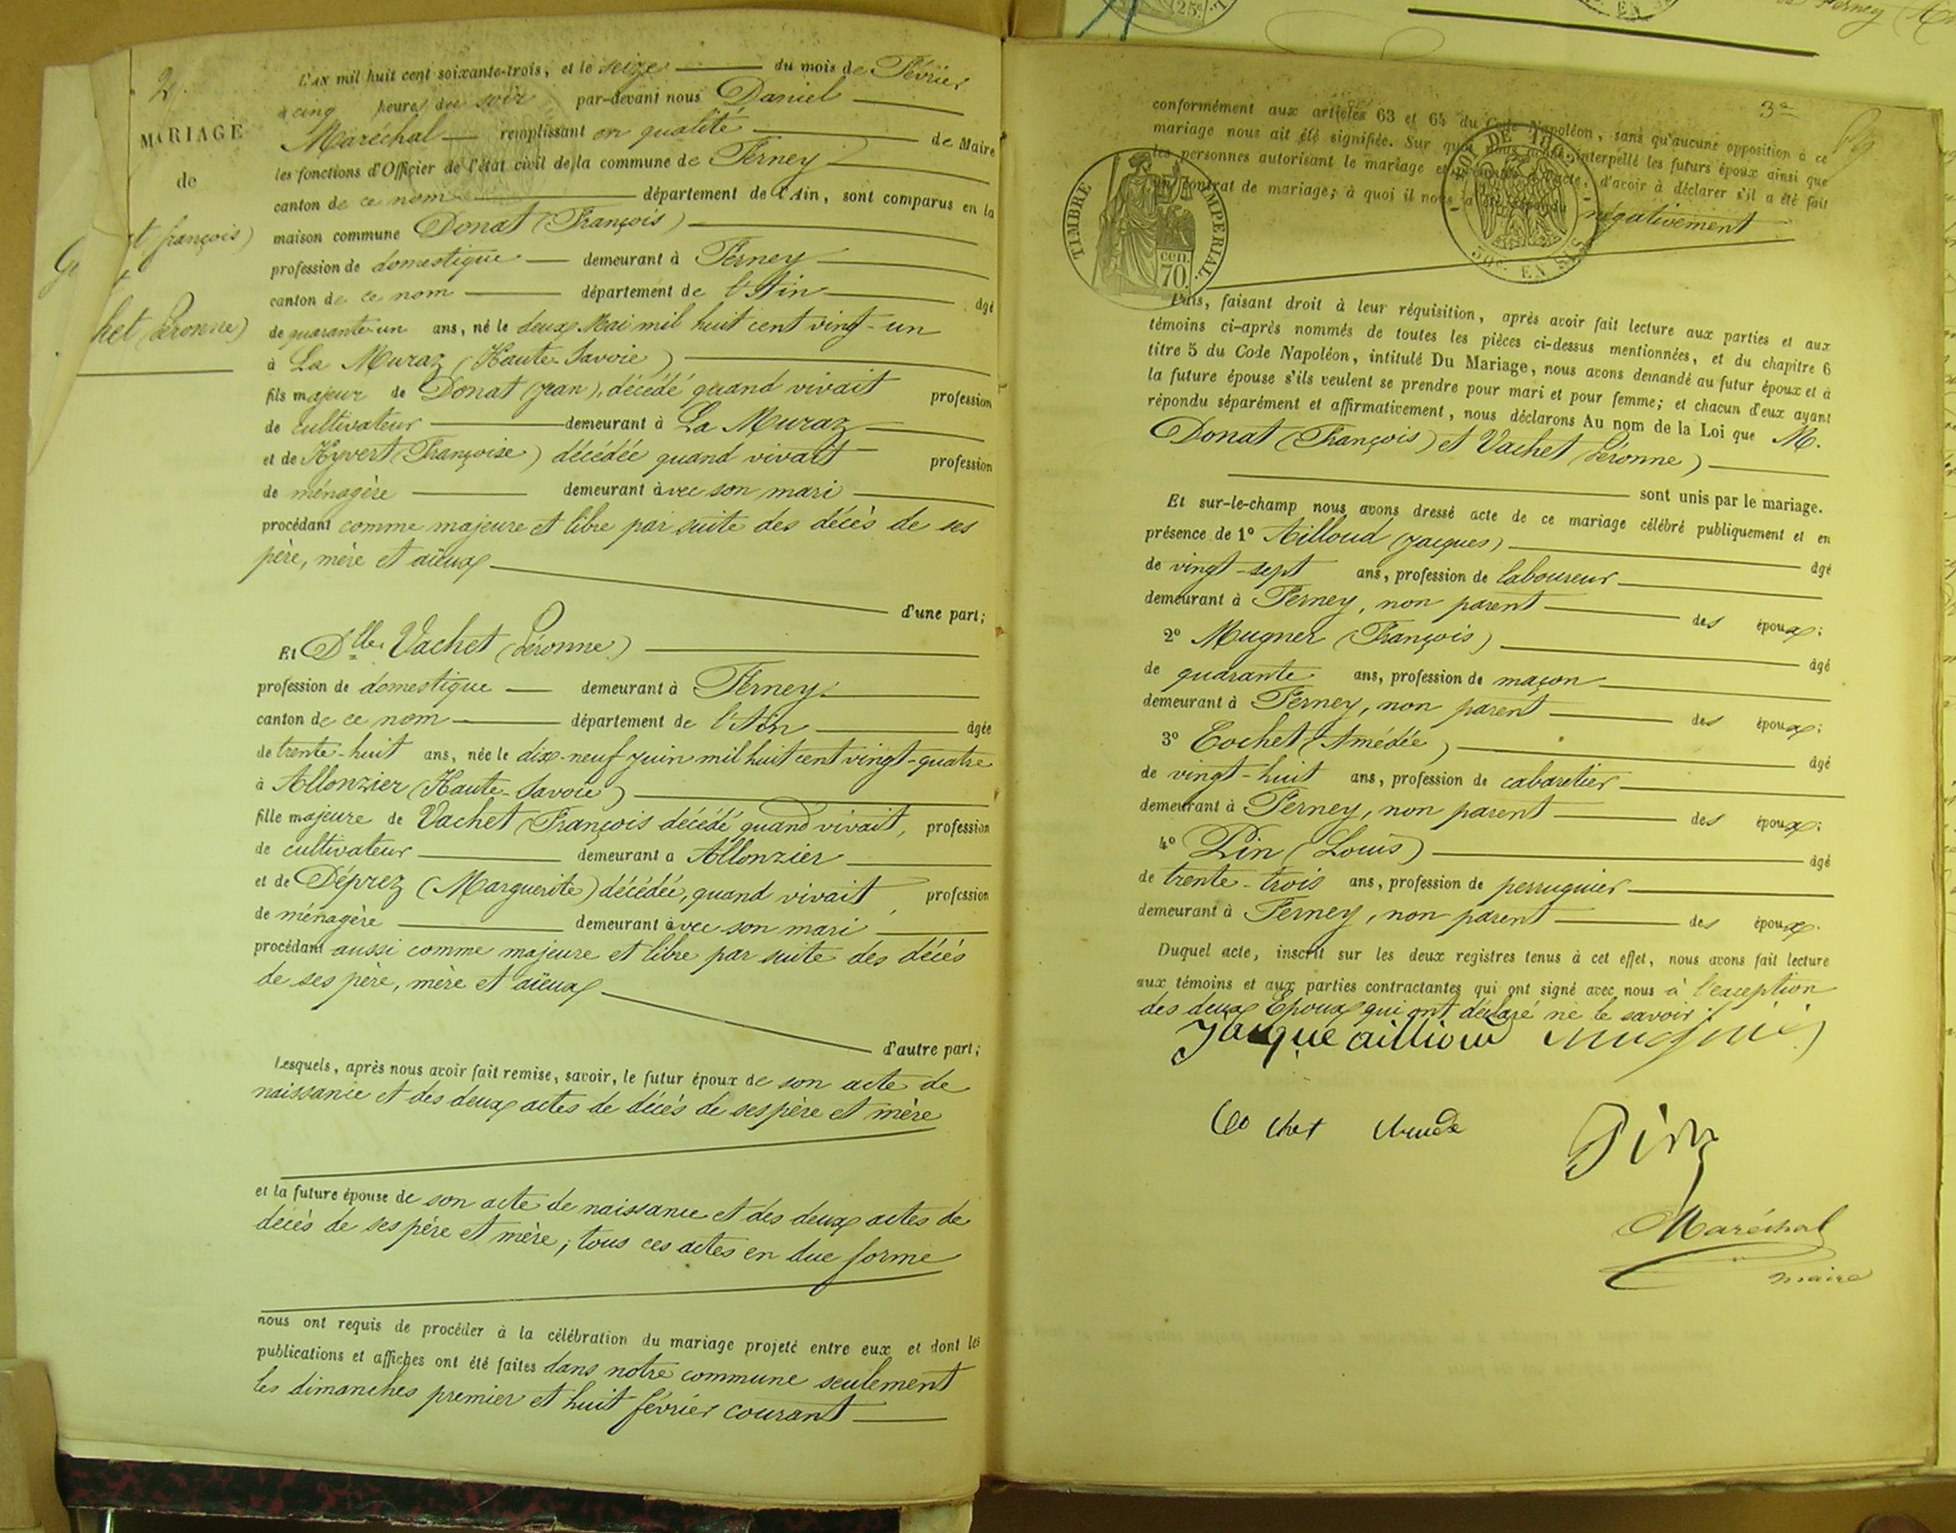 2.
MARIAGE
de
t françois)
et
het Péronne)
L'AN mil huit cent soixante-trois, et le seize du mois de Février
à cinq heures du soir par-devant nous Daniel
Maréchal remplissant en qualité de Maire
les fonctions d'Officier de l'état civil de la commune de Ferney
canton de ce nom département de l'Ain, sont comparus en la
maison commune Donat (François)
profession de domestique demeurant à Ferney
canton de ce nom département de l'Ain âgé
de quarante-un ans, né le deux Mai mil huit cent vingt-un
à La Muraz (Haute-Savoie)
fils majeur de Donat (Jean), décédé quand vivait profession
de cultivateur demeurant à La Muraz
et de Hyvert (Françoise) décédée quand vivait profession
de ménagère demeurant avec son mari
procédant comme majeure et libre par suite des décès de ses
père, mère et aïeux
d'une part;
Et Dlle Vachet (Péronne)
profession de domestique demeurant à Ferney
canton de ce nom département de l'Ain âgée
de trente-huit ans, née le dix-neuf juin mil huit cent vingt-quatre
à Allonzier (Haute-Savoie)
fille majeure de Vachet (François décédé quand vivait, profession
de cultivateur demeurant à Allonzier
et de Déprez (Marguerite) décédée, quand vivait, profession
de ménagère demeurant avec son mari
procédant aussi comme majeure et libre par suite des décés
de ses père, mère et aïeux
d'autre part;
Lesquels, après nous avoir fait remise, savoir, le futur époux de son acte de
naissance et des deux actes de décès de ses père et mère
et la future épouse de son acte de naissance et des deux actes de
décès de ses père et mère; tous ces actes en due forme
nous ont requis de procéder à la célébration du mariage projeté entre eux et dont les
publications et affiches ont été faites dans notre commune seulement
les dimanches premier et huit février courant
3e
conformément aux articles 63 et 64 du Code Napoléon, sans qu'aucune opposition à ce
mariage nous ait été signifiée. Sur quoi nous avons interpellé les futurs époux ainsi que
les personnes autorisant le mariage et d'avoir à déclarer s'il a été fait
un contrat de mariage; à quoi il nous a été répondu négativement
TIMBRE IMPERIAL.
cen.
70.
50c. EN SUS
Puis, faisant droit à leur réquisition, après avoir fait lecture aux parties et aux
témoins ci-après nommés de toutes les pièces ci-dessus mentionnées, et du chapitre 6
titre 5 du Code Napoléon, intitulé Du Mariage, nous avons demandé au futur époux et à
la future épouse s'ils veulent se prendre pour mari et pour femme; et chacun d'eux ayant
répondu séparément et affirmativement, nous déclarons Au nom de la Loi que M.
Donat (François) et Vachet (Péronne)
sont unis par le mariage.
Et sur-le-champ nous avons dressé acte de ce mariage célébré publiquement et en
présence de 1° Ailloud (Jacques) âgé
de vingt-sept ans, profession de laboureur
demeurant à Ferney, non parent des époux;
2° Mugner (François) âgé
de quarante ans, profession de maçon
demeurant à Ferney, non parent des époux;
3° Cochet (Amédée) âgé
de vingt-huit ans, profession de cabaretier
demeurant à Ferney, non parent des époux;
4° Pin (Louis) âgé
de trente-trois ans, profession de perruquier
demeurant à Ferney, non parent des époux.
Duquel acte, inscrit sur les deux registres tenus à cet effet, nous avons fait lecture
aux témoins et aux parties contractantes qui ont signé avec nous à l'exception
des deux Epoux qui ont déclaré ne le savoir.
Jacque aillioud
Cochet
Pin
Maréchal
maire